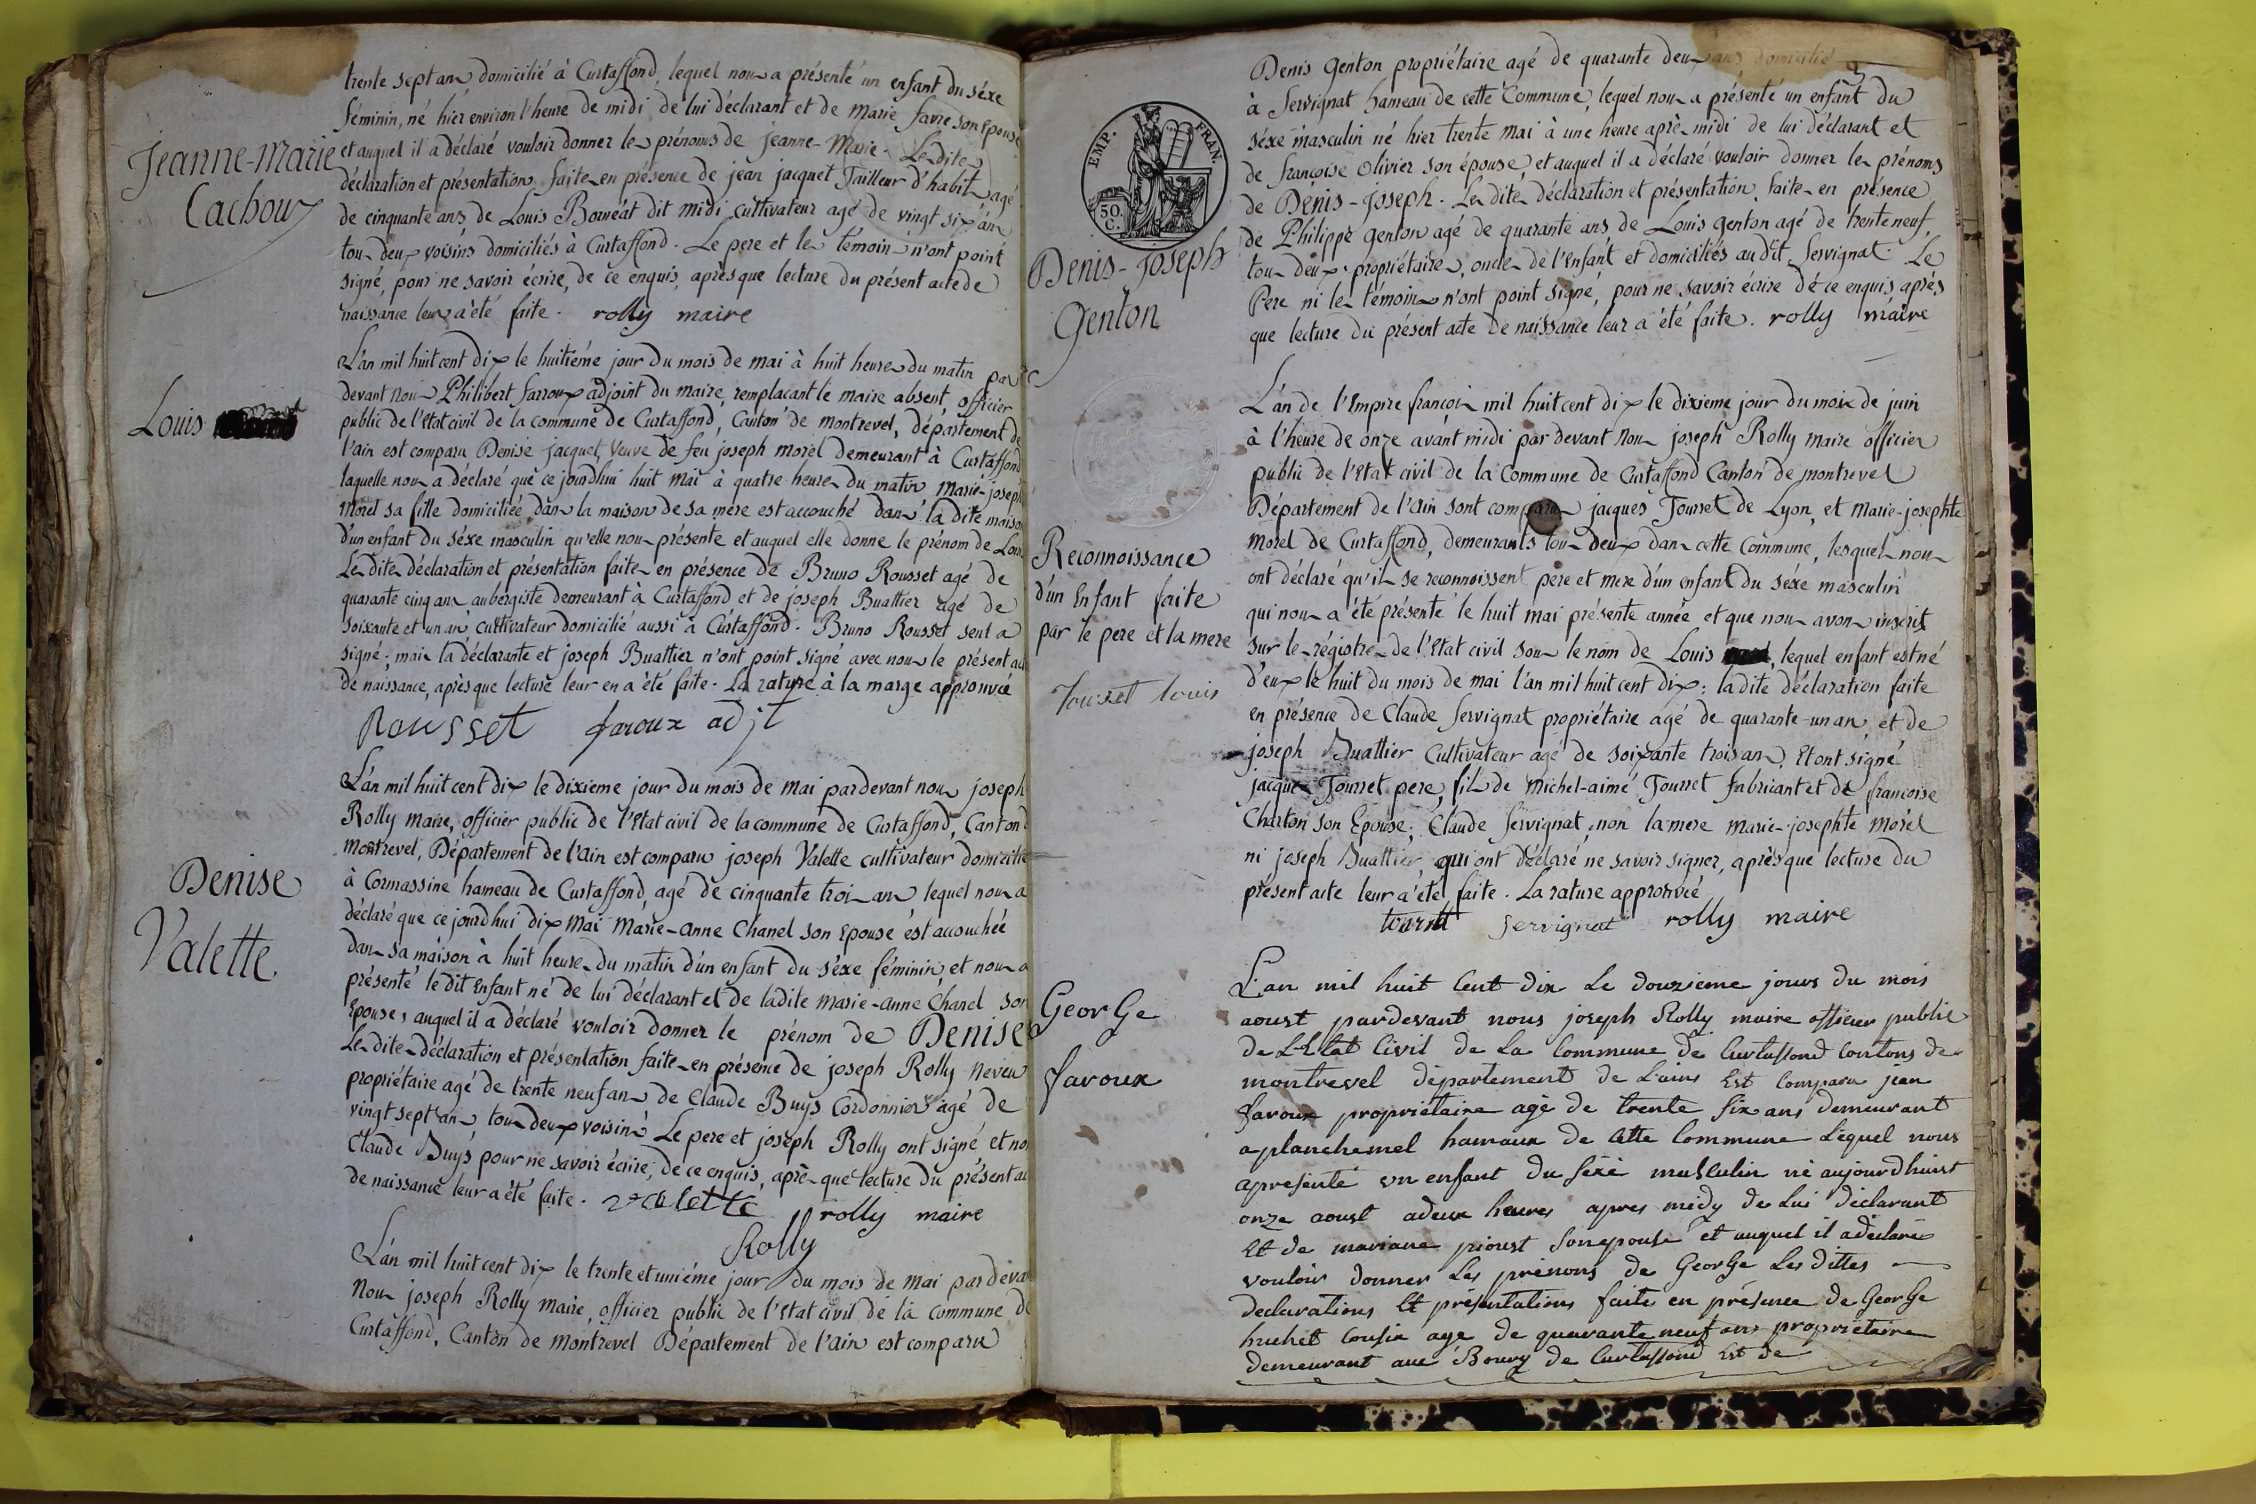 trente sept ans domicilié à Curtaffond, lequel nous a présenté un enfant du séxe
féminin, né hier environ l'heure de midi de lui déclarant et de Marie favre son Epouse
et auquel il a déclaré vouloir donner les prénoms de jeanne-Marie. Les dites
déclaration et présentation faites en présence de jean jacquet Tailleur d'habits agé
de cinquante ans, de Louis Bouvéat dit midi cultivateur agé de vingt six ans
tous deux voisins domiciliés à Curtaffond. Le pere et les témoins n'ont point
signé, pour ne savoir écrire, de ce enquis, après que lecture du présent acte de
naissance leur a été faite. rolly maire
Jeanne-Marie
Cachoux
L'an mil huit cent dix le huitiéme jour du mois de mai à huit heures du matin par
devant nous Philibert farroux adjoint du maire, remplacant le maire absent, officier
public de l'Etat civil de la commune de Curtaffond, Canton de montrevel, département de
l'ain est comparu Denise jacquet, veuve de feu joseph morel demeurant à Curtaffond
laquelle nous a déclaré que ce jourdhui huit mai à quatre heures du matin Marie-joseph
Morel sa fille domiciliée dans la maison de sa mere est accouché dans la dite maison
d'un enfant du séxe masculin qu'elle nous présente et auquel elle donne le prénom de Louis
Les dites déclaration et présentation faites en présence de Bruno Rousset agé de
quarante cinq ans, aubergiste demeurant à Curtaffond et de joseph Buattier agé de
soixante et un ans cultivateur domicilié aussi à Curtaffond. Bruno Rousset seul a
signé; mais la déclarante et joseph Buattier n'ont point signé avec nous le présent acte
de naissance, après que lecture leur en a été faite. La rature à la marge approuvée
Rousset faroux adjt
Louis
L'an mil huit cent dix le dixieme jour du mois de mai pardevant nous joseph
Rolly maire, officier public de l'Etat civil de la commune de Curtaffond, Canton d
montrevel, Département de l'ain est comparu joseph Valette cultivateur domicilié
à Cormassine hameau de Curtaffond, agé de cinquante trois ans lequel nous a
déclaré que ce jourd'hui dix mai marie-anne Chanel son Epouse est accouchée
dans sa maison à huit heures du matin d'un enfant du séxe féminin, et nous a
présenté le dit Enfant né de lui déclarant et de ladite marie-anne Chanel son
Epouse, auquel il a déclaré vouloir donner le prénom de Denise
Les dites déclaration et présentation faites en présence de joseph Rolly neveu
propriétaire agé de trente neuf ans de Claude Buys Cordonnier agé de
vingt sept ans, tous deux voisins. Le pere et joseph Rolly ont signé et non
Claude Buys pour ne savoir écrire; de ce enquis, après que lecture du présent ac
de naissance leur a été faite. valette rolly maire
Rolly
Denise
Valette
L'an mil huit cent dix le trente et uniéme jour du mois de mai par deva
nous joseph Rolly maire, officier public de l'Etat civil de la commune de
Curtaffond, Canton de montrevel Département de l'ain est comparu
Denis Genton propriétaire agé de quarante deux ans domicilié
à Servignat hameau de cette Commune, lequel nous a présenté un enfant du
séxe masculin né hier trente mai à une heure après midi de lui déclarant et
de françoise Olivier son épouse, et auquel il a déclaré vouloir donner les prénoms
de Denis-joseph. Les dites déclaration et présentation faites en présence
de Philippe Genton agé de quarante ans de Louis Genton agé de trente neuf,
tous deux propriétaires, oncles de l'Enfant et domiciliés audit Servignat. Le
Pere ni les témoins n'ont point signé, pour ne savoir écrire de ce enquis après
que lecture du présent acte de naissance leur a été faite. rolly maire
EMP. FRAN.
50.
C.
Denis-Joseph
Genton
L'an de l'Empire françois mil huit cent dix le dixieme jour du mois de juin
à l'heure de onze avant midi par devant nous joseph Rolly maire officier
public de l'Etat civil de la Commune de Curtaffond Canton de montrevel
Département de l'ain sont comparus jacques Tourret de Lyon, et Marie-josephte
Morel de Curtaffond, demeurants tous deux dans cette Commune, lesquels nous
ont déclaré qu'ils se reconnoissent pere et mere d'un enfant du séxe masculin
qui nous a été présenté le huit mai présente année et que nous avons inscrit
sur les régistres de l'Etat civil sous le nom de Louis, lequel enfant est né
d'eux le huit du mois de mai l'an mil huit cent dix; ladite déclaration faite
en présence de Claude Servignat propriétaire agé de quarante-un ans et de
joseph Buattier Cultivateur agé de soixante trois ans. Et ont signé
jacques Tourret pere, fils de Michel-aimé Tourret fabricant et de francoise
Charton son Epouse; Claude Servignat, non la mere Marie-josephte Morel
ni joseph Buattier, qui ont déclaré ne savoir signer, après que lecture du
présent acte leur a été faite. La rature approuvée
tourett Servignat rolly maire
Reconnoissance
d'un Enfant faite
par le pere et la mere
Tourret Louis
L'an mil huit Cent dix Le douzieme jours du mois
aoust pardevant nous joseph Rolly maire officier public
de L'Etat Civil de La Commune de Curtaffond Contons de
montrevel departement de L'ains Est Comparu jean
faroux propriétaire agé de trente six ans demeurant
a planchemel hamaux de Cette Commune Lequel nous
apresenté un enfant du séxé musculin né aujourdhuist
onze aoust adeux heures apres midy de Lui declarant
Et de mariane pioust sonepouse et auquel il adeclaré
vouloir donner Les prénons de GeorGe Les dittes
declarations Et présentations faite en présence de GeorGe
huchet Cousin age de quarante neuf ans propriétaire
demeurant aue Bourg de Curtaffond Est de
GeorGe
faroux